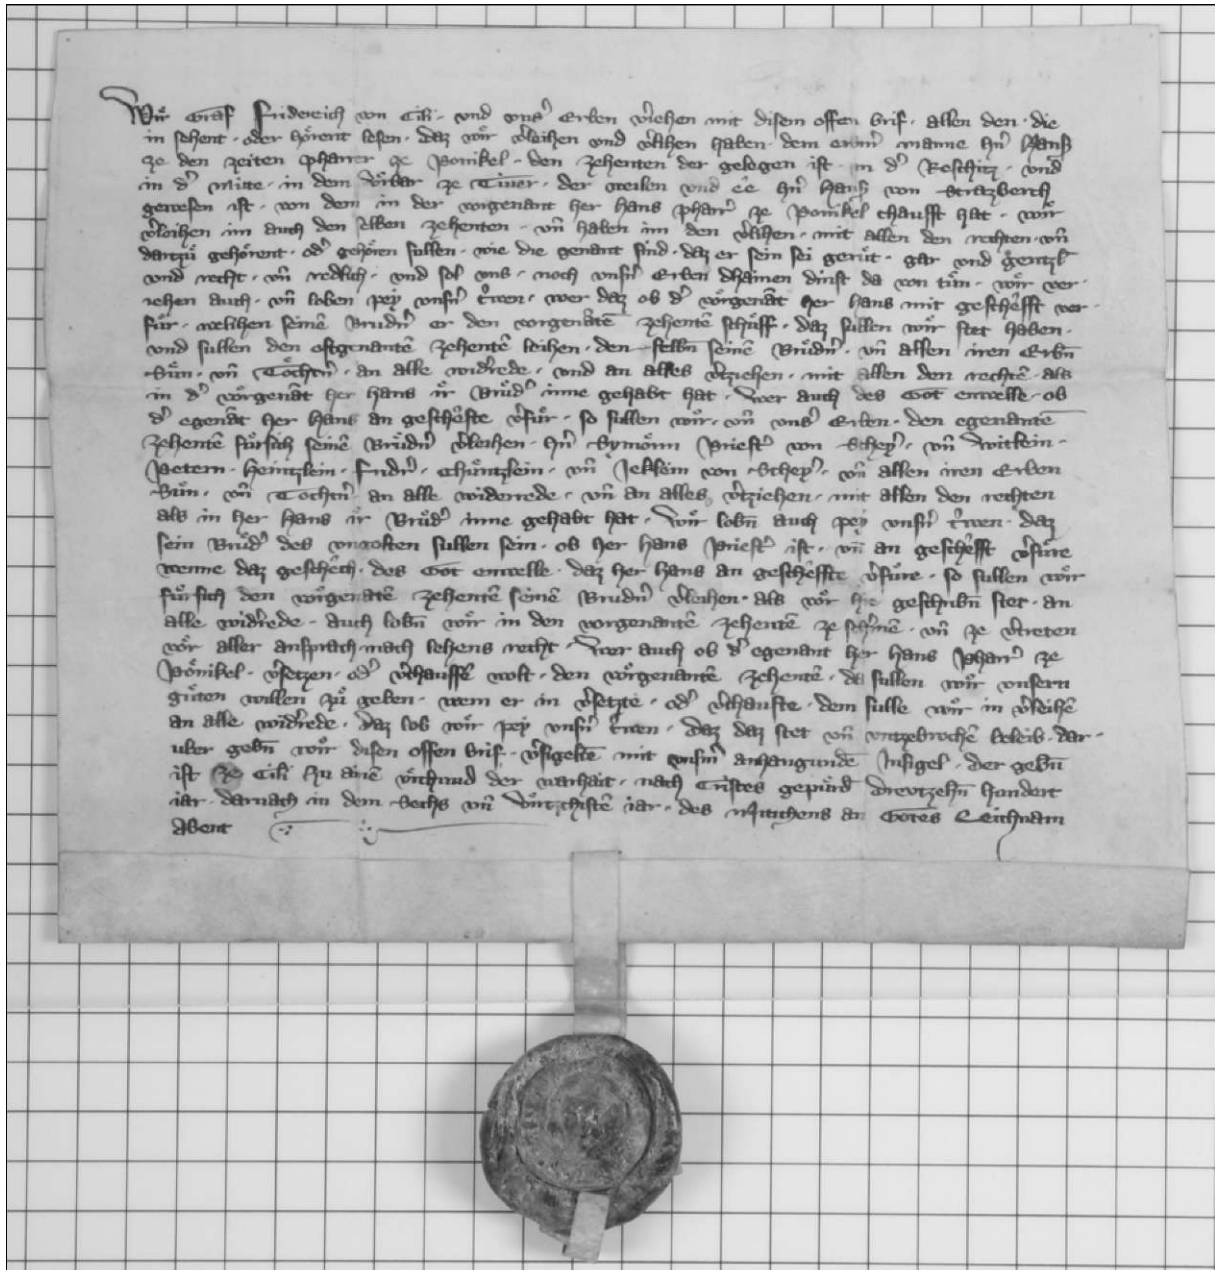 Wir Graf Fridereich von Cili · vnd vnsˀ Erben vˀiehen mit disem offen brif · allen den · die
in sehent · oder hoͤrent lesen · daz wir vˀleihen vnd vˀlihen haben · dem erbmˀ manne hˀn Hans
ze den zeiten pharrer ze Ponikel · den zehenten der gelegen ist · in dˀ Reschitz · vnd
in dˀ mitte · in dem Vrbar ze Tiuer · der weilen vnd ee hˀn Hans von Strazberch
gewesen ist · von dem in der vorgenant her hans pharrˀ ze Ponikel chaufft hat · wir
vˀleihen im auch den selben zehenten · vn̄ haben im den vˀlihen · mit allen den rechten · vn̄
dartzuͦ gehoͤrent · odˀ gehoͤren sullen · wie die genant sind · daz er sein sei geruͤt · gar vnd gentzlˀ
vnd recht · vn̄ redlich · vnd sol vns · noch vnsˀn Erben dhainen dinst da von tuͤn · wir ver·
iehen auch · vn̄ loben pey vnsˀn tˀwen · wer daz ob dˀ vorgenāt her hans mit geschefft ver·
fuͤr · welihen seinē Brudˀn er den vorgenātē zehentē schuͤff · daz sullen wir stet haben ·
vnd sullen den oftgenantē zehentē leihen · den selbn̄ seinē Bruͤdˀn · vn̄ allen iren Erbn̄
Suͤn · vn̄ Toͤchtˀn · an alle widˀrede · vnd an alles vˀtziehen · mit allen den rechtē · als
in dˀ vorgenāt her hans ir Bruͤdˀ inne gehabt hat · Wer auch des Got enwelle · ob
dˀ egenāt her Hans an gescheffte vˀfuͤr · so sullen wir · vn̄ vnsˀ Erben · den egenantē
zehentē fuͤrsich seinē Bruͤdˀn vˀleihen · hˀn Symoͤnn Priestˀ von Scheyˀ · vn̄ Witlein ·
Petern · Heintzlein · Fridˀn · Chuͤntzlein · vn̄ Jeklein von Scheyˀ · vn̄ allen iren Erben
Suͤn · vn̄ Tochtˀn an alle widerrede · vn̄ an alles vˀtziehen · mit allen den rechten
als in her Hans ir Bruͤdˀ inne gehabt hat · Wir lobn̄ auch pey vnsˀn tˀwen · daz
sein Bruͤdˀ des vngolten sullen sein · ob her Hans Priestˀ ist · vn̄ an geschefft vˀfuͤre
wenne daz geschech · des Got enwelle · daz her hans an gescheffte vˀfuͤre · so sullen wir
fuͤrsich den vorgenātē zehentē seinē Brudˀn vˀleihen · als vor hie geschribn̄ stet · an
alle widˀrede · auch lobn̄ wir in den vorgenantē zehentē ze schˀmē · vn̄ ze vˀtreten
vor aller ansprach · nach lehens recht · Wer auch ob dˀ egenant her Hans Pharrˀ ze
Ponikel · vˀsetzen · odˀ vˀchauffē wolt · den vorgenantē zehentē · da sullen wir vnsern
guͤten willen zuͦ geben · wem er in vˀsetzte · odˀ vˀchaufte · dem sulle wir in vˀleihē
an alle widˀrede · daz lob wir pey vnsˀn tˀwen · daz daz stet vn̄ vntzebrochē beleib · dar·
uber gebn̄ wir disen offen brif · vˀsigeltē mit vnsˀm anhangundē Insigel · der gebn̄
ist ze Cili Zu ainē vrchund der warhait · nach Cristes gepuͤrd Dreutzehn̄ hundert
iar · darnach in dem Sechs vn̄ Virtzchistē iar · des Mittichens an Gotes Leichnam
Abent